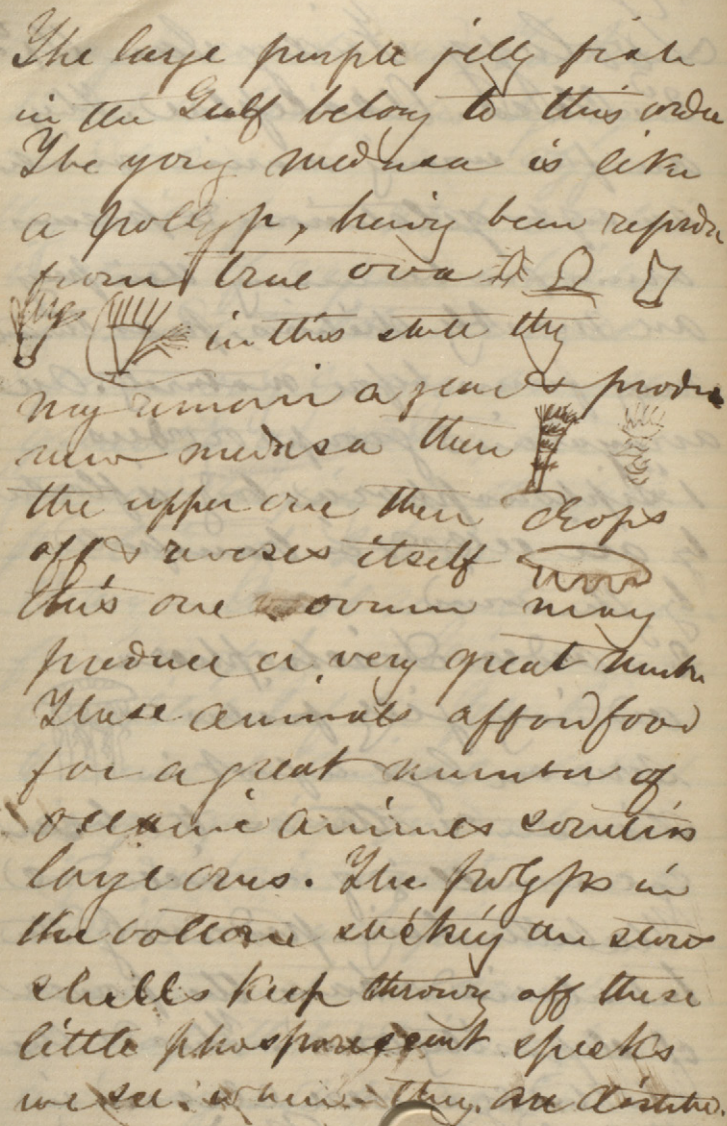 The large purple jelly fish
in the Gulf belong to this order
The young medusa is like
a pollyp, having been reprodu
from true ova
in this state they
may remain a year & produ
new medusa then
the upper one then drops
off & reverses itself
this one ovum may
produce a very great numbr
These animals afford food
for a great number of
oceanic animls sometims
large ones. The polyps in
the bottom sticking on stons
shells keep throwing off these
little phosporescent specks
we see. when they are distrbd.